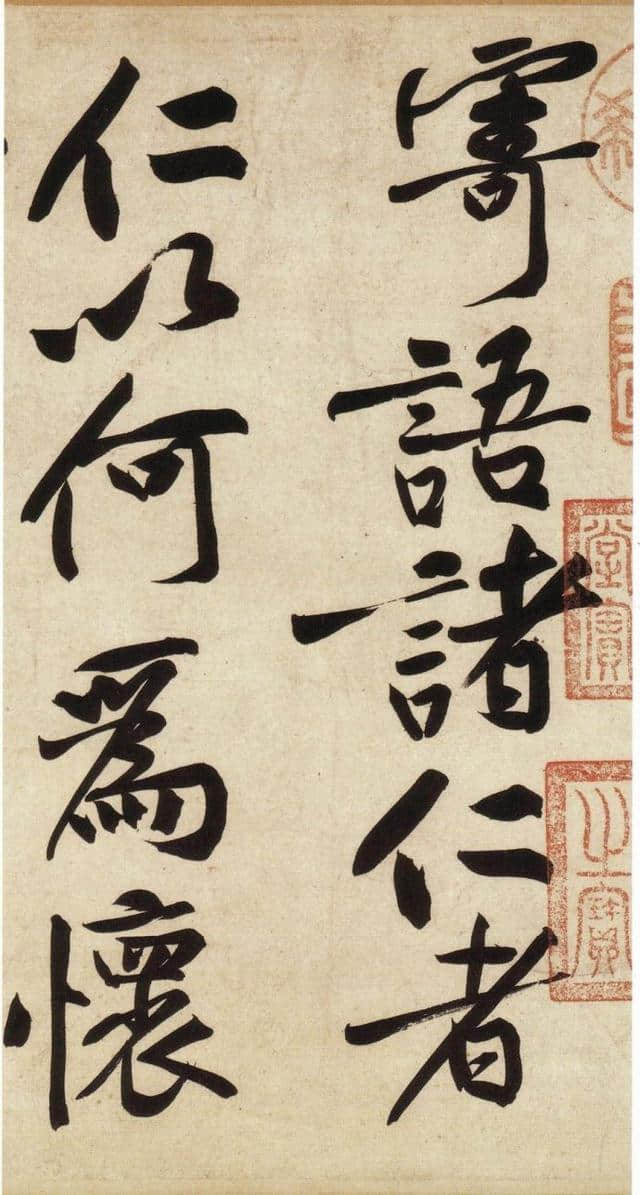 寄語諸仁者
仁以何爲懷